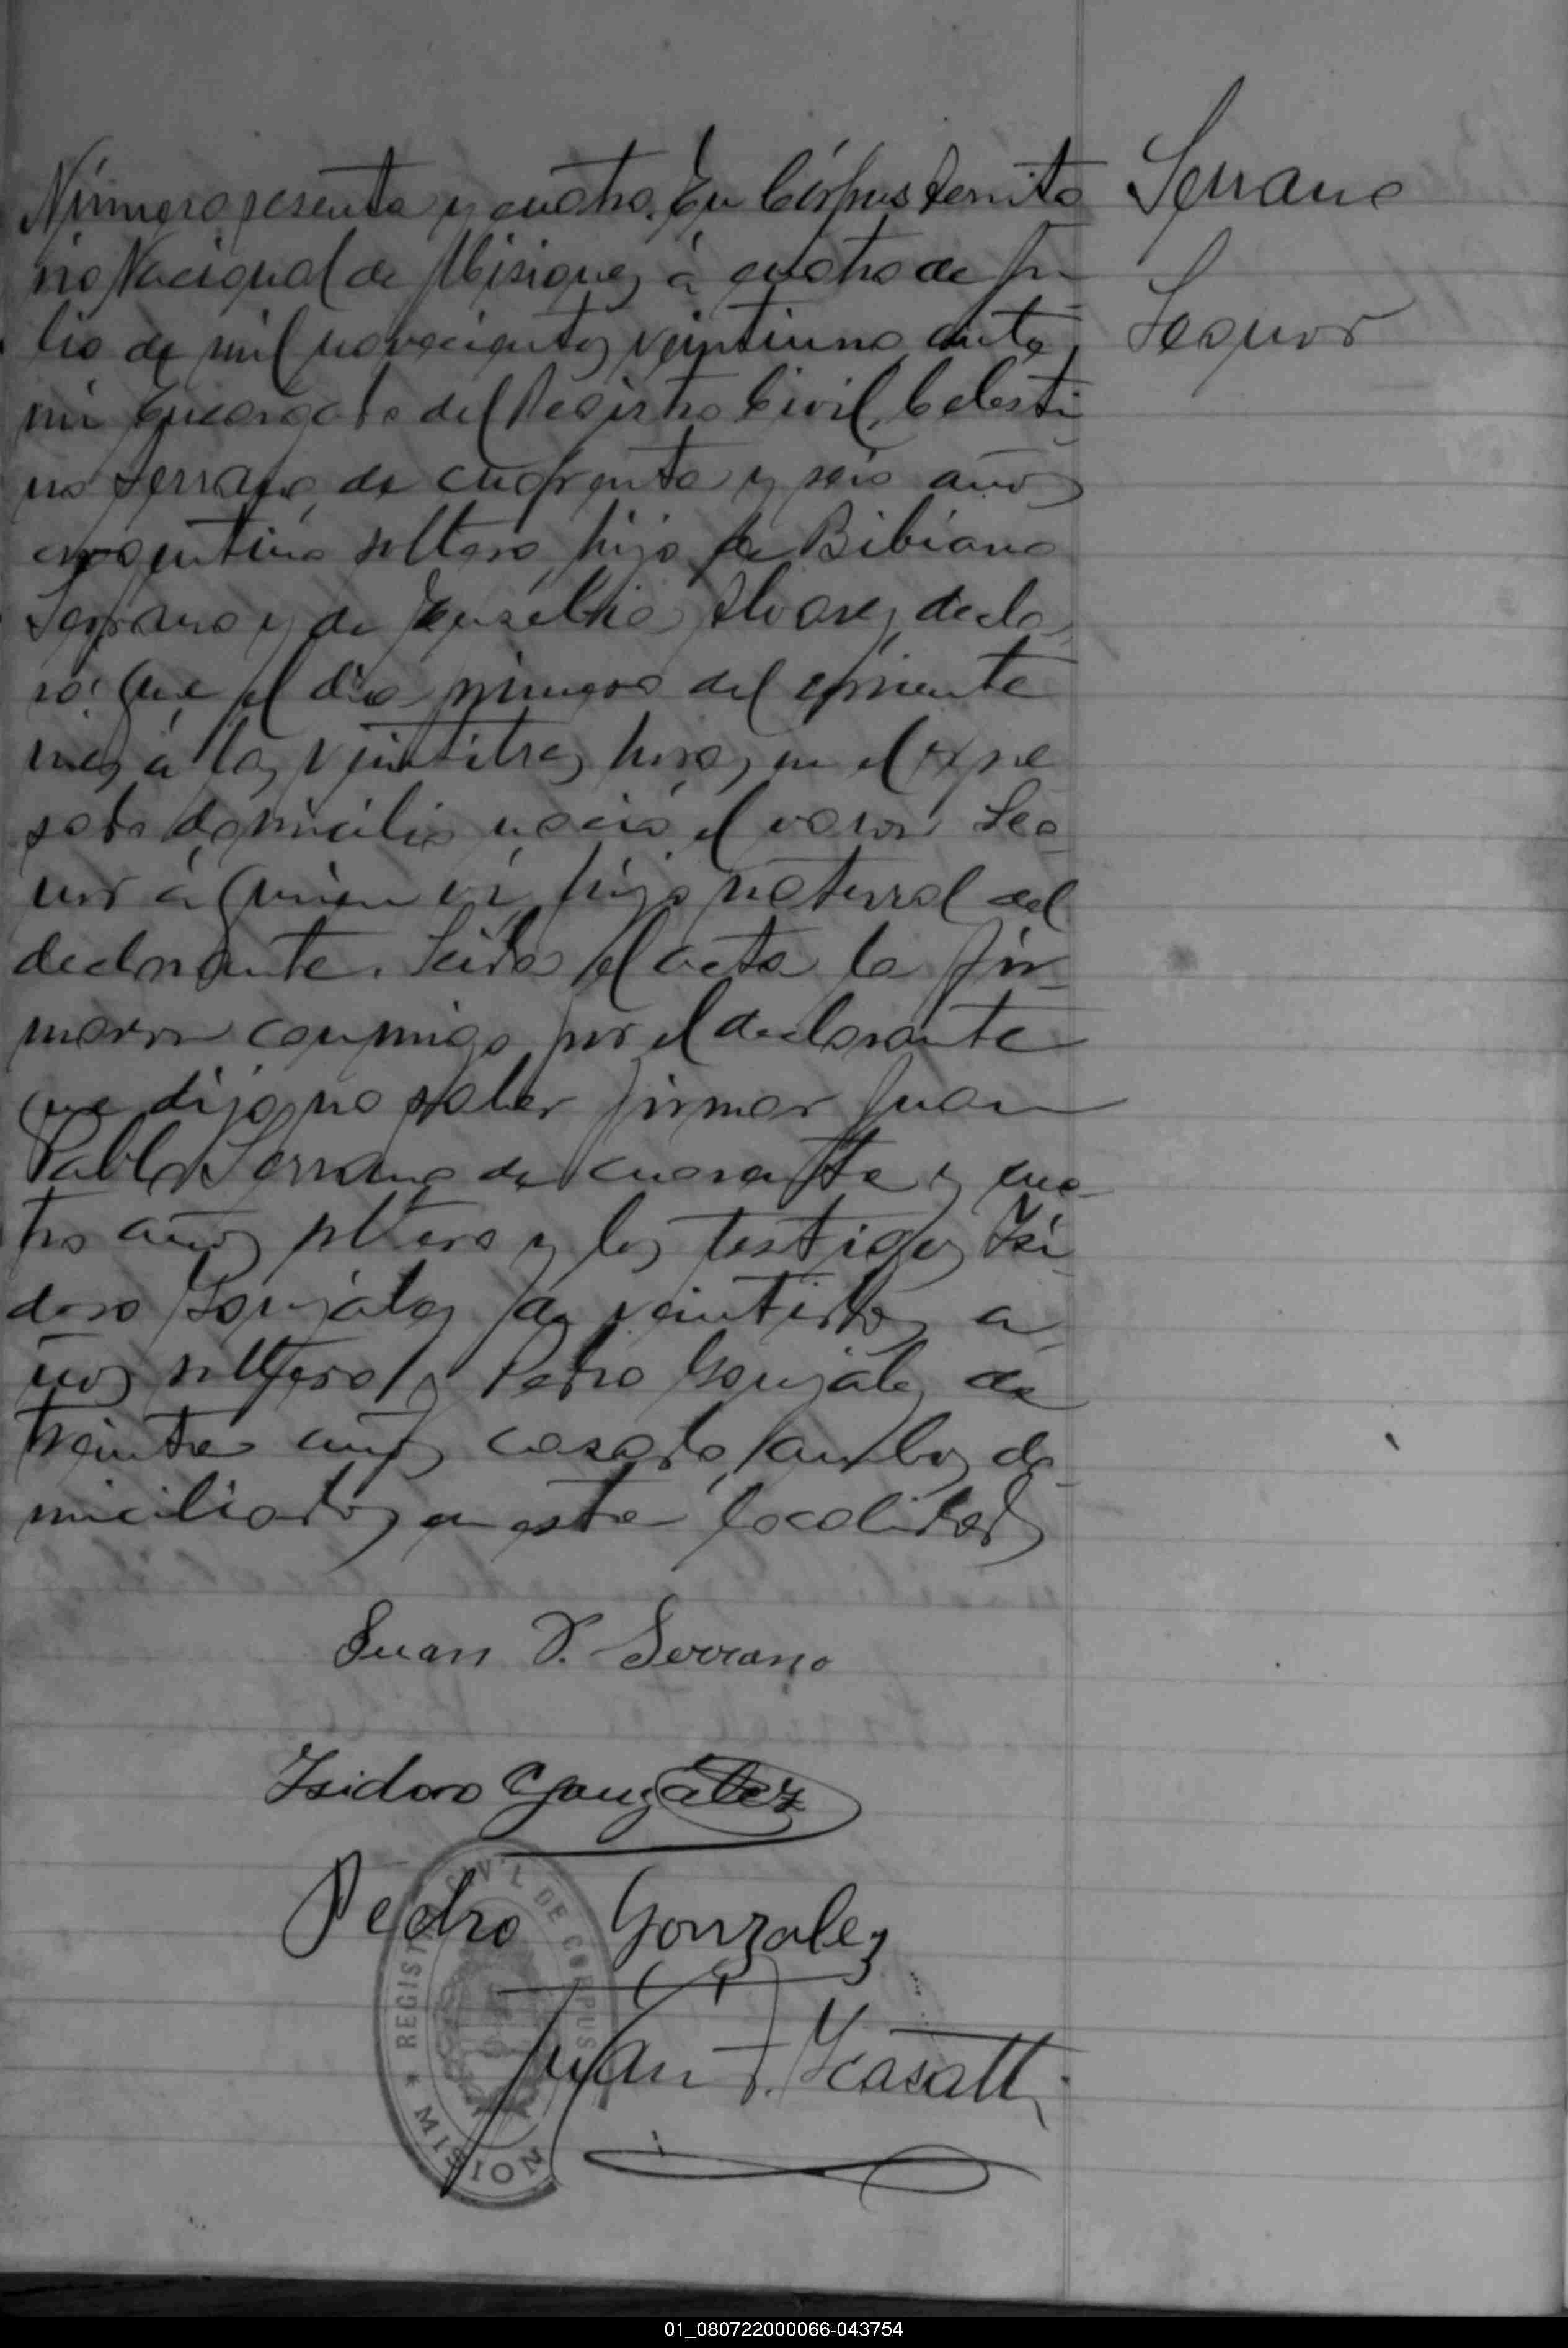 Número sesenta y cuatro. En Córpus Territo
rio Nacional de Misiones á cuatro de Ju
lio de mil novecientos veintiuno, ante
mi Encargado del Registro Civil, Celesti
no Serrano, de cuarenta y seis años
argentino soltero, hijo de Bibiano
Serrano y de Eusebia Alvarez, decla
ró: Que el dia primero del corriente
mes á las veintitres horas, en el expre
sado domicilio nació el varon Lea
nor á quien ví, hijo natural del
declarante. Leida el acta la fir
maron conmigo por el declarante
que dijo no saber firmar Juan
Pablo Serrano de cuarenta y cua
tro años soltero y los testigos Isi
doro González de veintidos a
ños soltero y Pedro González de
treinta años casado, ambos do
miciliados en esta localidad
Serrano
Leanor
Juan P. Serrano
Isidoro González
Pedro Gonzalez
Juan F.
REGISTRO CIVIL DE CORPUS
★ MISION
01_080722000066-043754